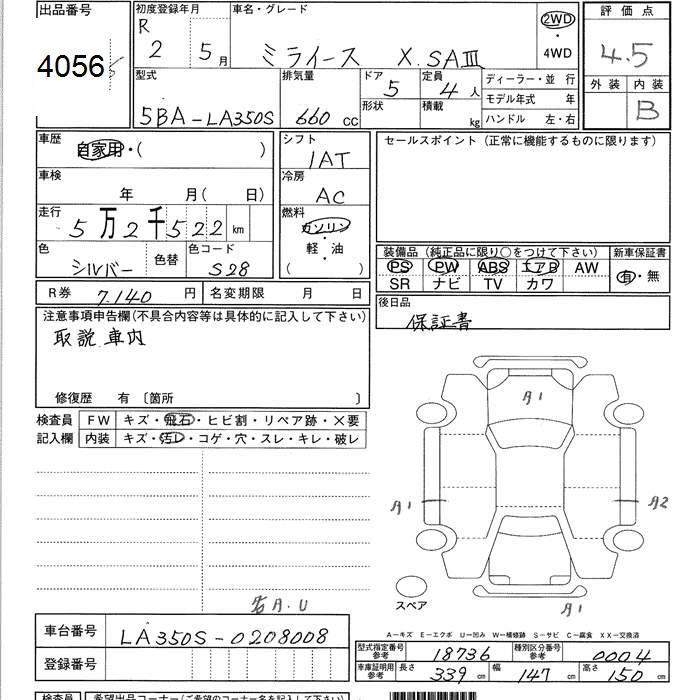 出品番号 初度登録年月 車名・グレード 評価点
4056 R 2 5月 ミライース X.SAⅢ 2WD・4WD 4.5
型式 排気量 ドア 定員 ディーラー・並 行 外装 内装
5BA-LA350S 660 cc 5 4人 モデル年式 年 B
形状 積載 kg ハンドル 左・右
車歴 自家用・( ) シフト セールスポイント(正常に機能するものに限ります)
1AT
車検 年 月( 日) 冷房
AC
走行 5万2千522km 燃料 ガソリン
軽・油
( )
色 シルバー 色替 色コード S28
装備品(純正品に限り○をつけて下さい) 新車保証書
PS PW ABS エアB AW 有・無
SR ナビ TV カワ
R券 7.140 円 名変期限 月 日 後日品
保証書
注意事項申告欄(不具合内容等は具体的に記入して下さい)
取説 車内
修復歴 有〔箇所 〕
検査員 FW キズ・飛石・ヒビ割・リペア跡・×要
記入欄 内装 キズ・汚レ・コゲ・穴・スレ・キレ・破レ
A1
A1 A2
A1
スペア
A.U
A-キズ E-エクボ U-凹み W-補修跡 S-サビ C-腐食 XX-交換済
車台番号 LA350S-0208008
型式指定番号参考 18736 種別区分番号参考 0004
登録番号 車庫証明用参考 長さ 339 cm 幅 147 cm 高さ 150 cm
検査員 希望出品コーナー(ご希望のコーナー名を記入下さい)